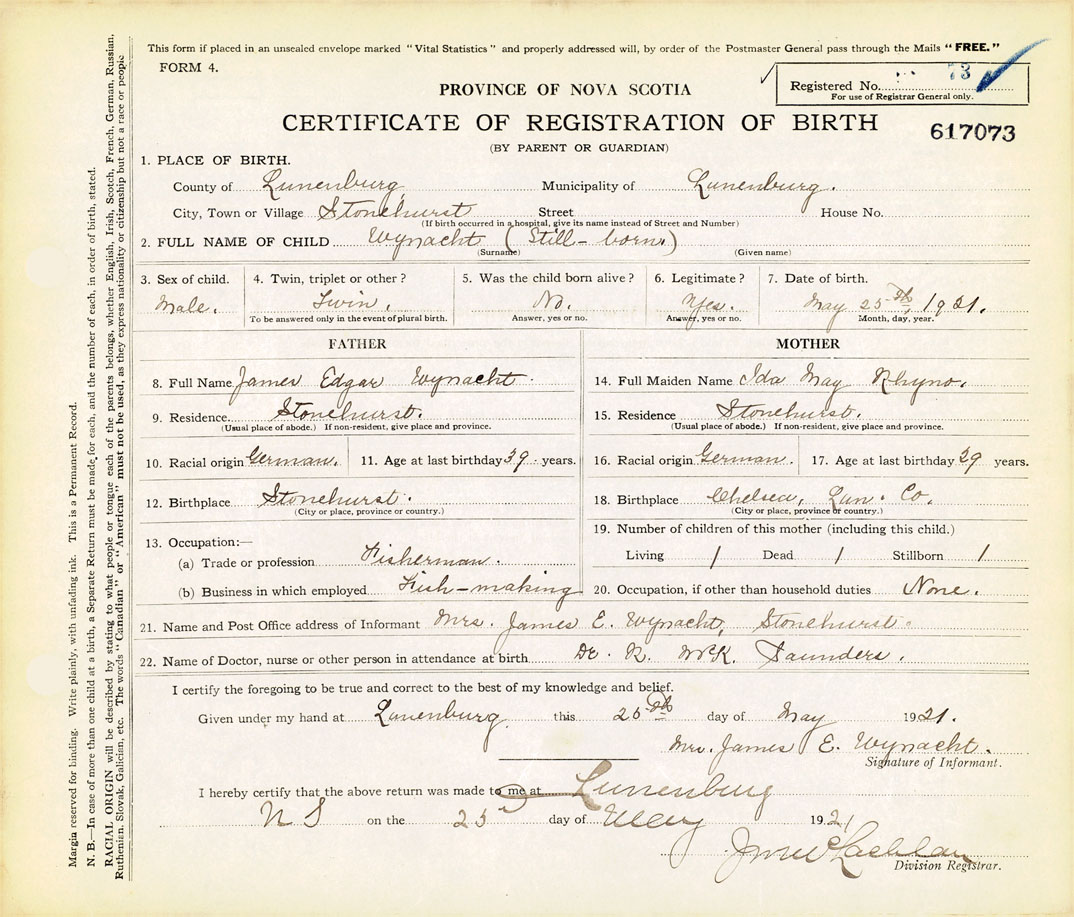 This form if placed in an unsealed envelope marked "Vital Statistics" and properly addressed will, by order of the Postmaster General pass through the Mails "FREE."
FORM 4.
Registered No. 73
For use of Registrar General only.
PROVINCE OF NOVA SCOTIA
CERTIFICATE OF REGISTRATION OF BIRTH
617073
(BY PARENT OR GUARDIAN)
1. PLACE OF BIRTH.
County of Lunenburg Municipality of Lunenburg.
City, Town or Village Stonehurst Street House No.
(If birth occurred in a hospital, give its name instead of Street and Number)
2. FULL NAME OF CHILD Wynacht (Still-born.)
(Surname) (Given name)
3. Sex of child. 4. Twin, triplet or other? 5. Was the child born alive? 6. Legitimate? 7. Date of birth.
Male. Twin. No. Yes. May 25th, 1921.
To be answered only in the event of plural birth. Answer, yes or no. Answer, yes or no. Month, day, year.
FATHER
8. Full Name James Edgar Wynacht.
9. Residence Stonehurst.
(Usual place of abode.) If non-resident, give place and province.
10. Racial origin German. 11. Age at last birthday 39 years.
12. Birthplace Stonehurst.
(City or place, province or country.)
13. Occupation:—
(a) Trade or profession Fisherman.
(b) Business in which employed Fish-making
MOTHER
14. Full Maiden Name Ida May Rhyno.
15. Residence Stonehurst.
(Usual place of abode.) If non-resident, give place and province.
16. Racial origin German. 17. Age at last birthday 39 years.
18. Birthplace Chelsea, Lun. Co.
(City or place, province or country.)
19. Number of children of this mother (including this child.)
Living 1 Dead 1 Stillborn 1
20. Occupation, if other than household duties None.
21. Name and Post Office address of Informant Mrs. James E. Wynacht, Stonehurst.
22. Name of Doctor, nurse or other person in attendance at birth Dr. R. McK. Saunders.
I certify the foregoing to be true and correct to the best of my knowledge and belief.
Given under my hand at Lunenburg this 25th day of May 1921.
Mrs. James E. Wynacht.
Signature of Informant.
I hereby certify that the above return was made to me at Lunenburg
N S on the 25 day of May 1921
McLachlan
Division Registrar.
Margin reserved for binding. Write plainly, with unfading ink. This is a Permanent Record.
N. B.—In case of more than one child at a birth, a Separate Return must be made for each, and the number of each, in order of birth, stated.
RACIAL ORIGIN will be described by stating to what people or tongue each of the parents belongs, whether English, Irish, Scotch, French, German, Russian,
Ruthenian, Slovak, Galician, etc. The words "Canadian" or "American" must not be used, as they express nationality or citizenship but not a race or people